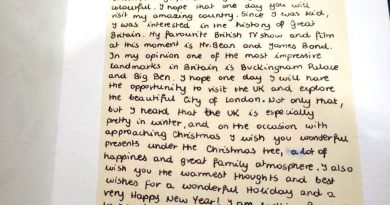 colourful. I hope that one day you will
visit my amazing country. Since I was kid,
I was interested in the history of Great
Britain. My favourite British TV show and film
at this moment is Mr. Bean and James Bond.
In my opinion one of the most impressive
landmarks in Britain is Buckingham Palace
and Big Ben. I hope one day I will have
the opportunity to visit the UK and explore
the beautiful City of London. Not only that,
but I heard that the UK is especially
pretty in winter, and on the occasion with
approaching Christmas I wish you wonderful
presents under the Christmas tree, a lot of
happines and great family atmosphere. I also
wish you the warmest thoughts and best
wishes for a wonderful Holiday and a
very Happy New Year! I am